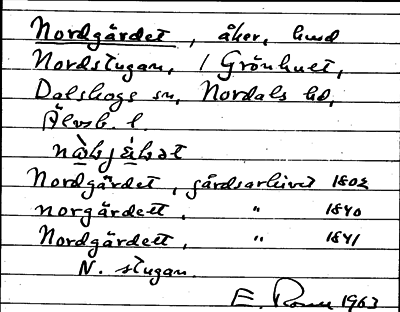 Nordgärdet, åker, hmd
Nordstugan, 1 Grönhult,
Dalskogs sn, Nordals hd,
Älvsb. l.
Nordgärdet, gårdsarkivet 1802
norgärdett, " 1840
Nordgärdett, " 1841
N. stugan.
E. 1963